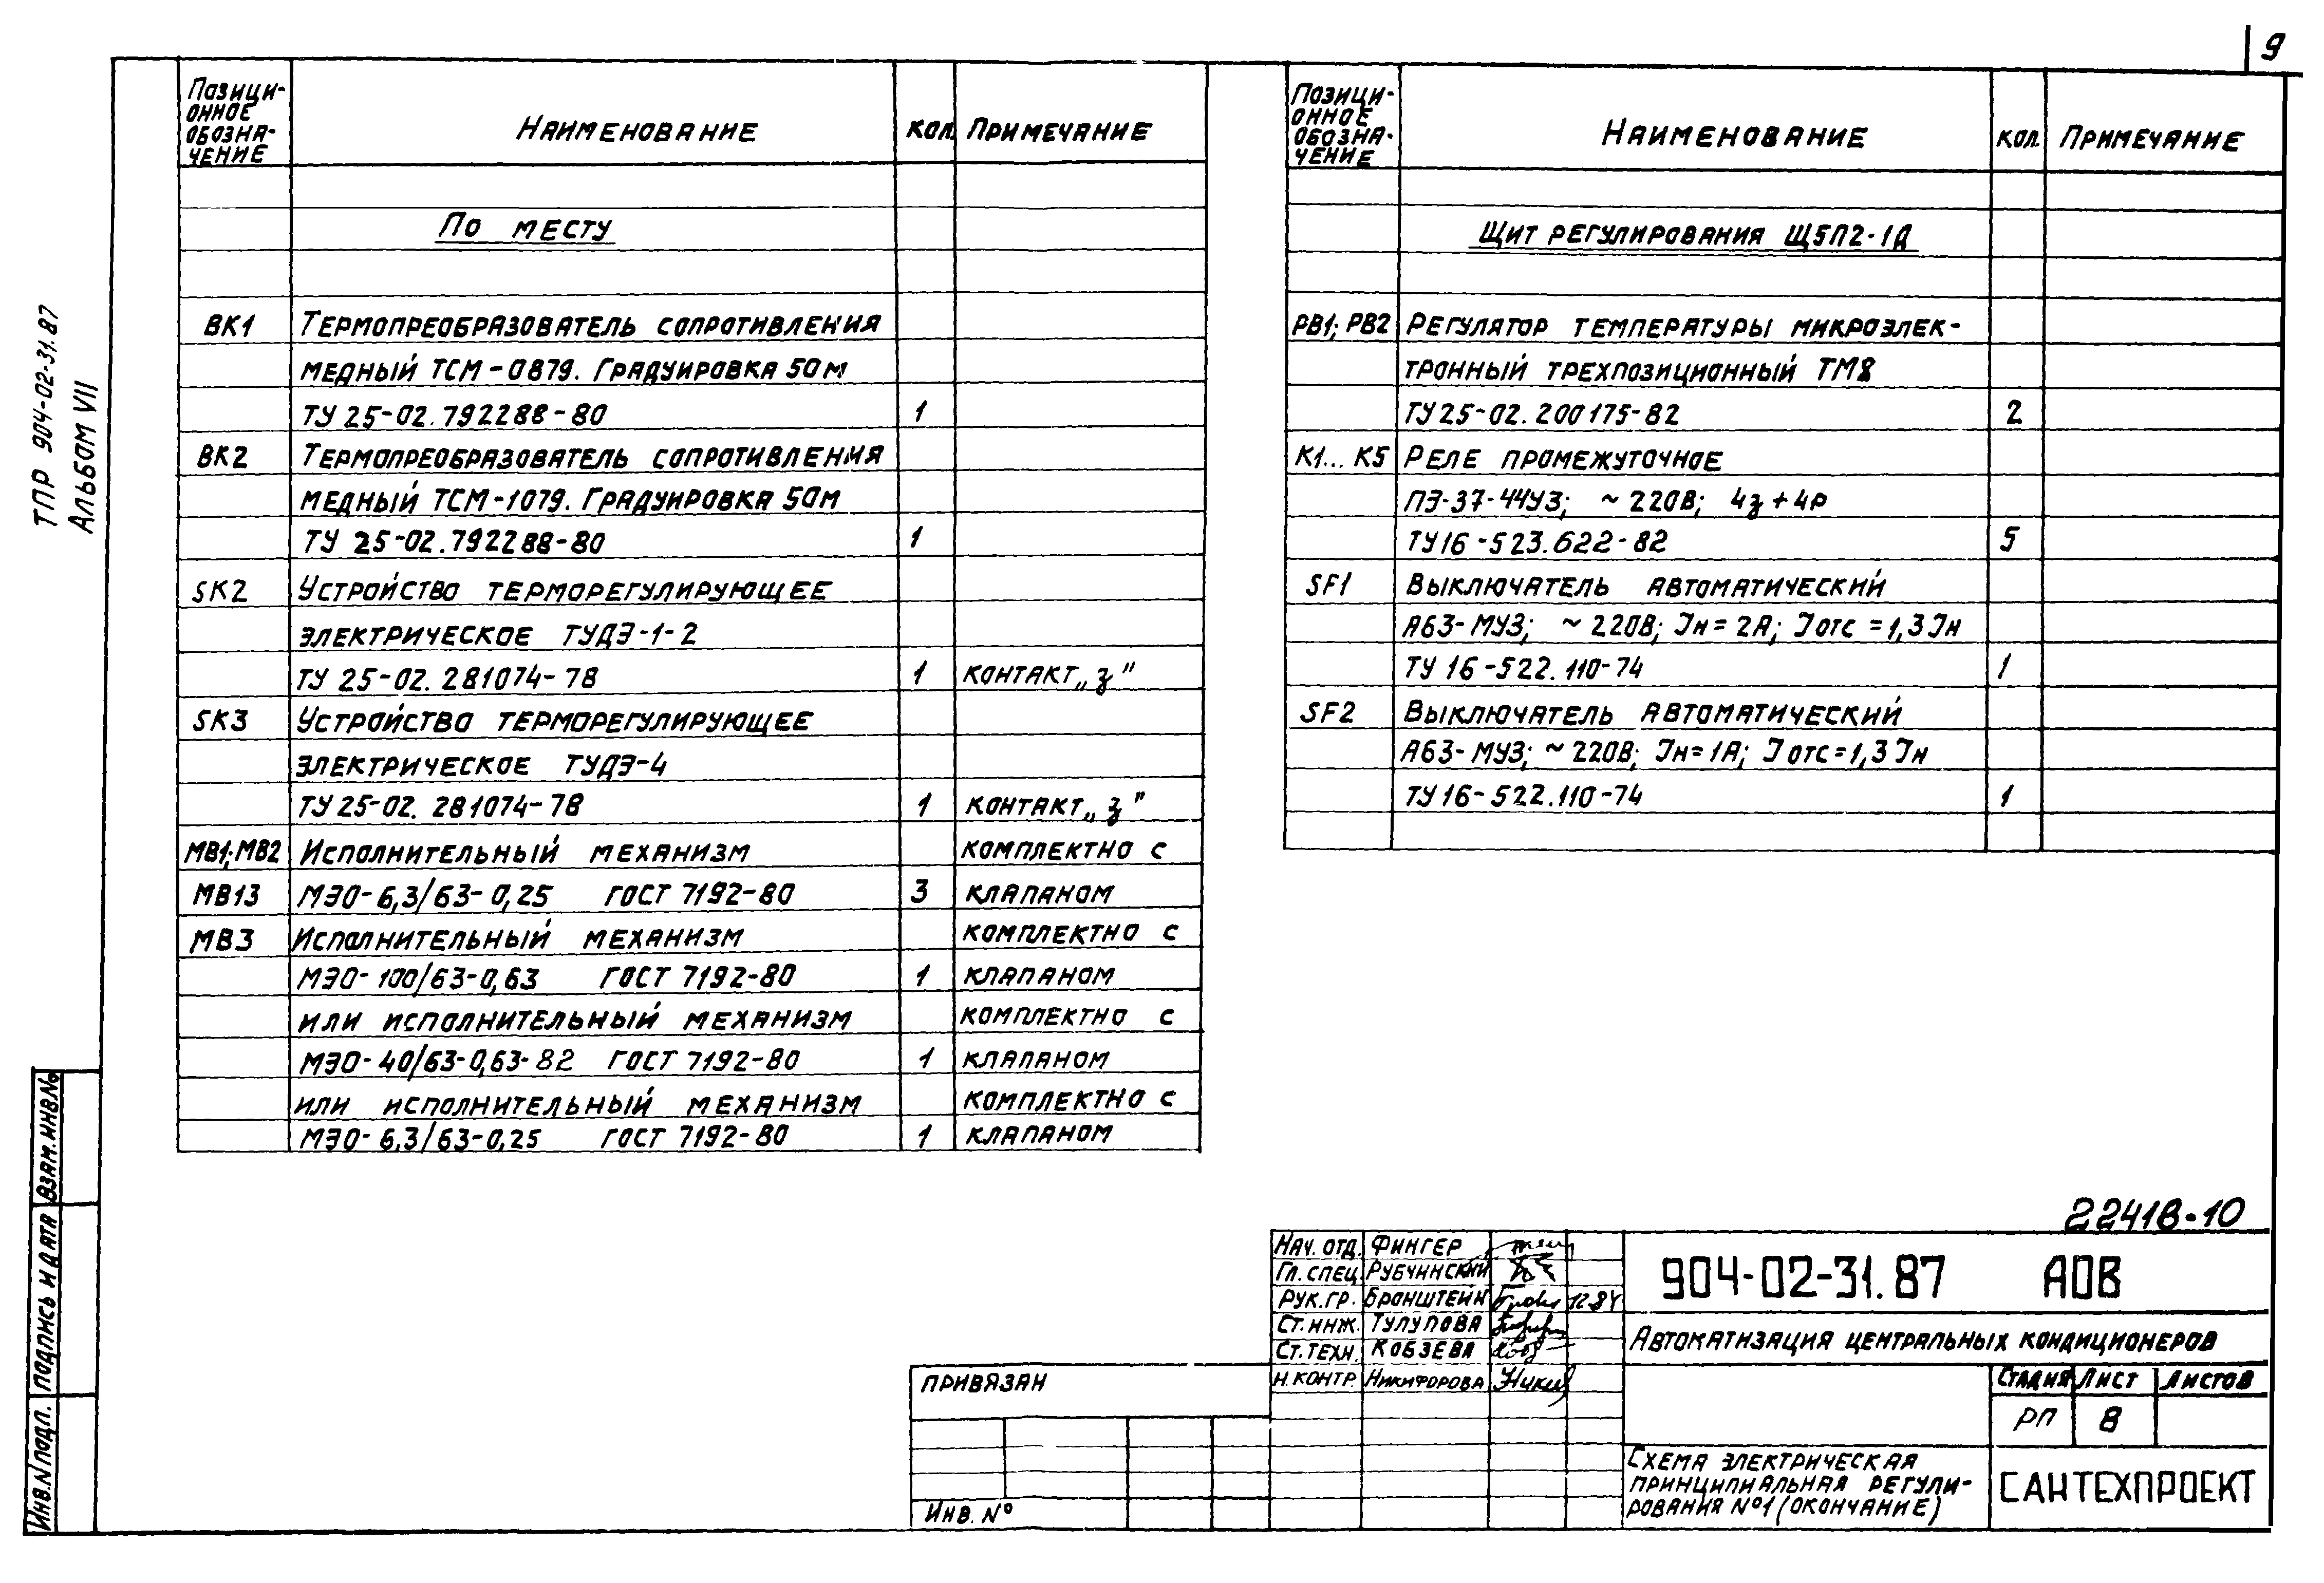 9
ТПР 904-02-31.87
Альбом VII
Позици-
онное
обозна-
чение
Наименование
кол.
Примечание
По месту
ВК1 Термопреобразователь сопротивления
медный ТСМ-0879. Градуировка 50м
ТУ 25-02.792288-80 1
ВК2 Термопреобразователь сопротивления
медный ТСМ-1079. Градуировка 50м
ТУ 25-02.792288-80 1
SK2 Устройство терморегулирующее
электрическое ТУДЭ-1-2
ТУ 25-02.281074-78 1 контакт „з"
SK3 Устройство терморегулирующее
электрическое ТУДЭ-4
ТУ 25-02.281074-78 1 контакт „з"
МВ1;МВ2 Исполнительный механизм комплектно с
МВ13 МЭО-6,3/63-0,25 ГОСТ 7192-80 3 клапаном
МВ3 Исполнительный механизм комплектно с
МЭО-100/63-0,63 ГОСТ 7192-80 1 клапаном
или исполнительный механизм комплектно с
МЭО-40/63-0,63-82 ГОСТ 7192-80 1 клапаном
или исполнительный механизм комплектно с
МЭО-6,3/63-0,25 ГОСТ 7192-80 1 клапаном
Позици-
онное
обозна-
чение
Наименование
кол.
Примечание
Щит регулирования Щ5П2-1Д
РВ1; РВ2 Регулятор температуры микроэлек-
тронный трехпозиционный ТМ8
ТУ25-02.200175-82 2
К1... К5 Реле промежуточное
ПЭ-37-44У3; ~220В; 4з+4р
ТУ16-523.622-82 5
SF1 Выключатель автоматический
А63-МУ3; ~220В; Iн=2А; Iотс=1,3Iн
ТУ 16-522.110-74 1
SF2 Выключатель автоматический
А63-МУ3; ~220В; Iн=1А; Iотс=1,3Iн
ТУ16-522.110-74 1
Взам.инв№
Подпись и дата
Инв.№подл.
22418-10
Нач. отд. Фингер
Гл.спец. Рубчинский
Рук.гр. Бронштейн
Ст.инж. Тулупова
Ст.техн. Кобзева
Н.контр. Никифорова
904-02-31.87 АОВ
Автоматизация центральных кондиционеров
Стадия Лист Листов
РП 8
Схема электрическая
принципиальная регули-
рования №1 (окончание)
САНТЕХПРОЕКТ
Привязан
Инв. №